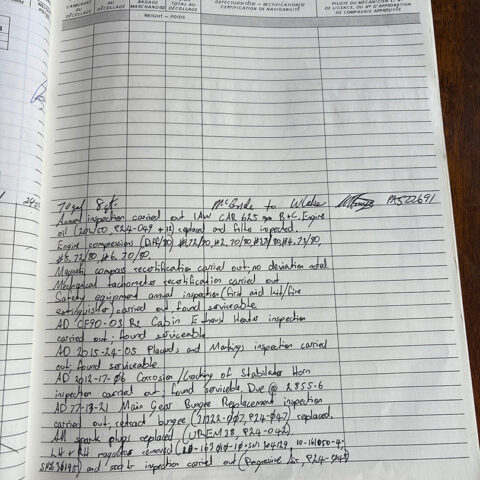 CARBURANT AU DÉCOLLAGE
AU DÉCOLLAGE
BAGAGE MARCHANDISE
TOTAL AU DÉCOLLAGE
WEIGHT — POIDS
DÉFECTUOSITÉ(S) — RECTIFICATION(S)
CERTIFICATION DE NAVIGABILITÉ
PILOTE OU MÉCANICIEN
DE LICENCE, OU Nº D'APPROBATION
DE COMPAGNIE APPROUVÉE
to
Annual inspection carried out IAW CAR 625 app B+C. Engine
oil (20W50, P24-049 + 12) replaced and filter inspected.
Engine compressions (Diff/80) #1.72/80, #2.70/80, #4.73/80,
#5.72/80, #6.70/80.
Magnetic compass recertification carried out, no deviation noted
Mechanical tachometer recertification carried out
Safety equipment annual inspection (First aid kit/fire
extinguisher) carried out, found serviceable.
AD CF90-03 R2 Cabin Exhaust Heater inspection
carried out found serviceable
AD 2015-24-05 Placards and Markings inspection carried
out, found serviceable
AD 2012-17-06 Corrosion/Cracking of Stabilator Horn
inspection carried out, found serviceable. Due @ 2855.6
AD 77-13-21 Main Gear Bungee Replacement inspection
carried out, retract bungee (31322-007, P24-047) replaced.
All spark plugs replaced (UREM38, P24-042)
LH + RH magnetos removed
and 500 hr inspection carried out (Progressive Air, P24-045)